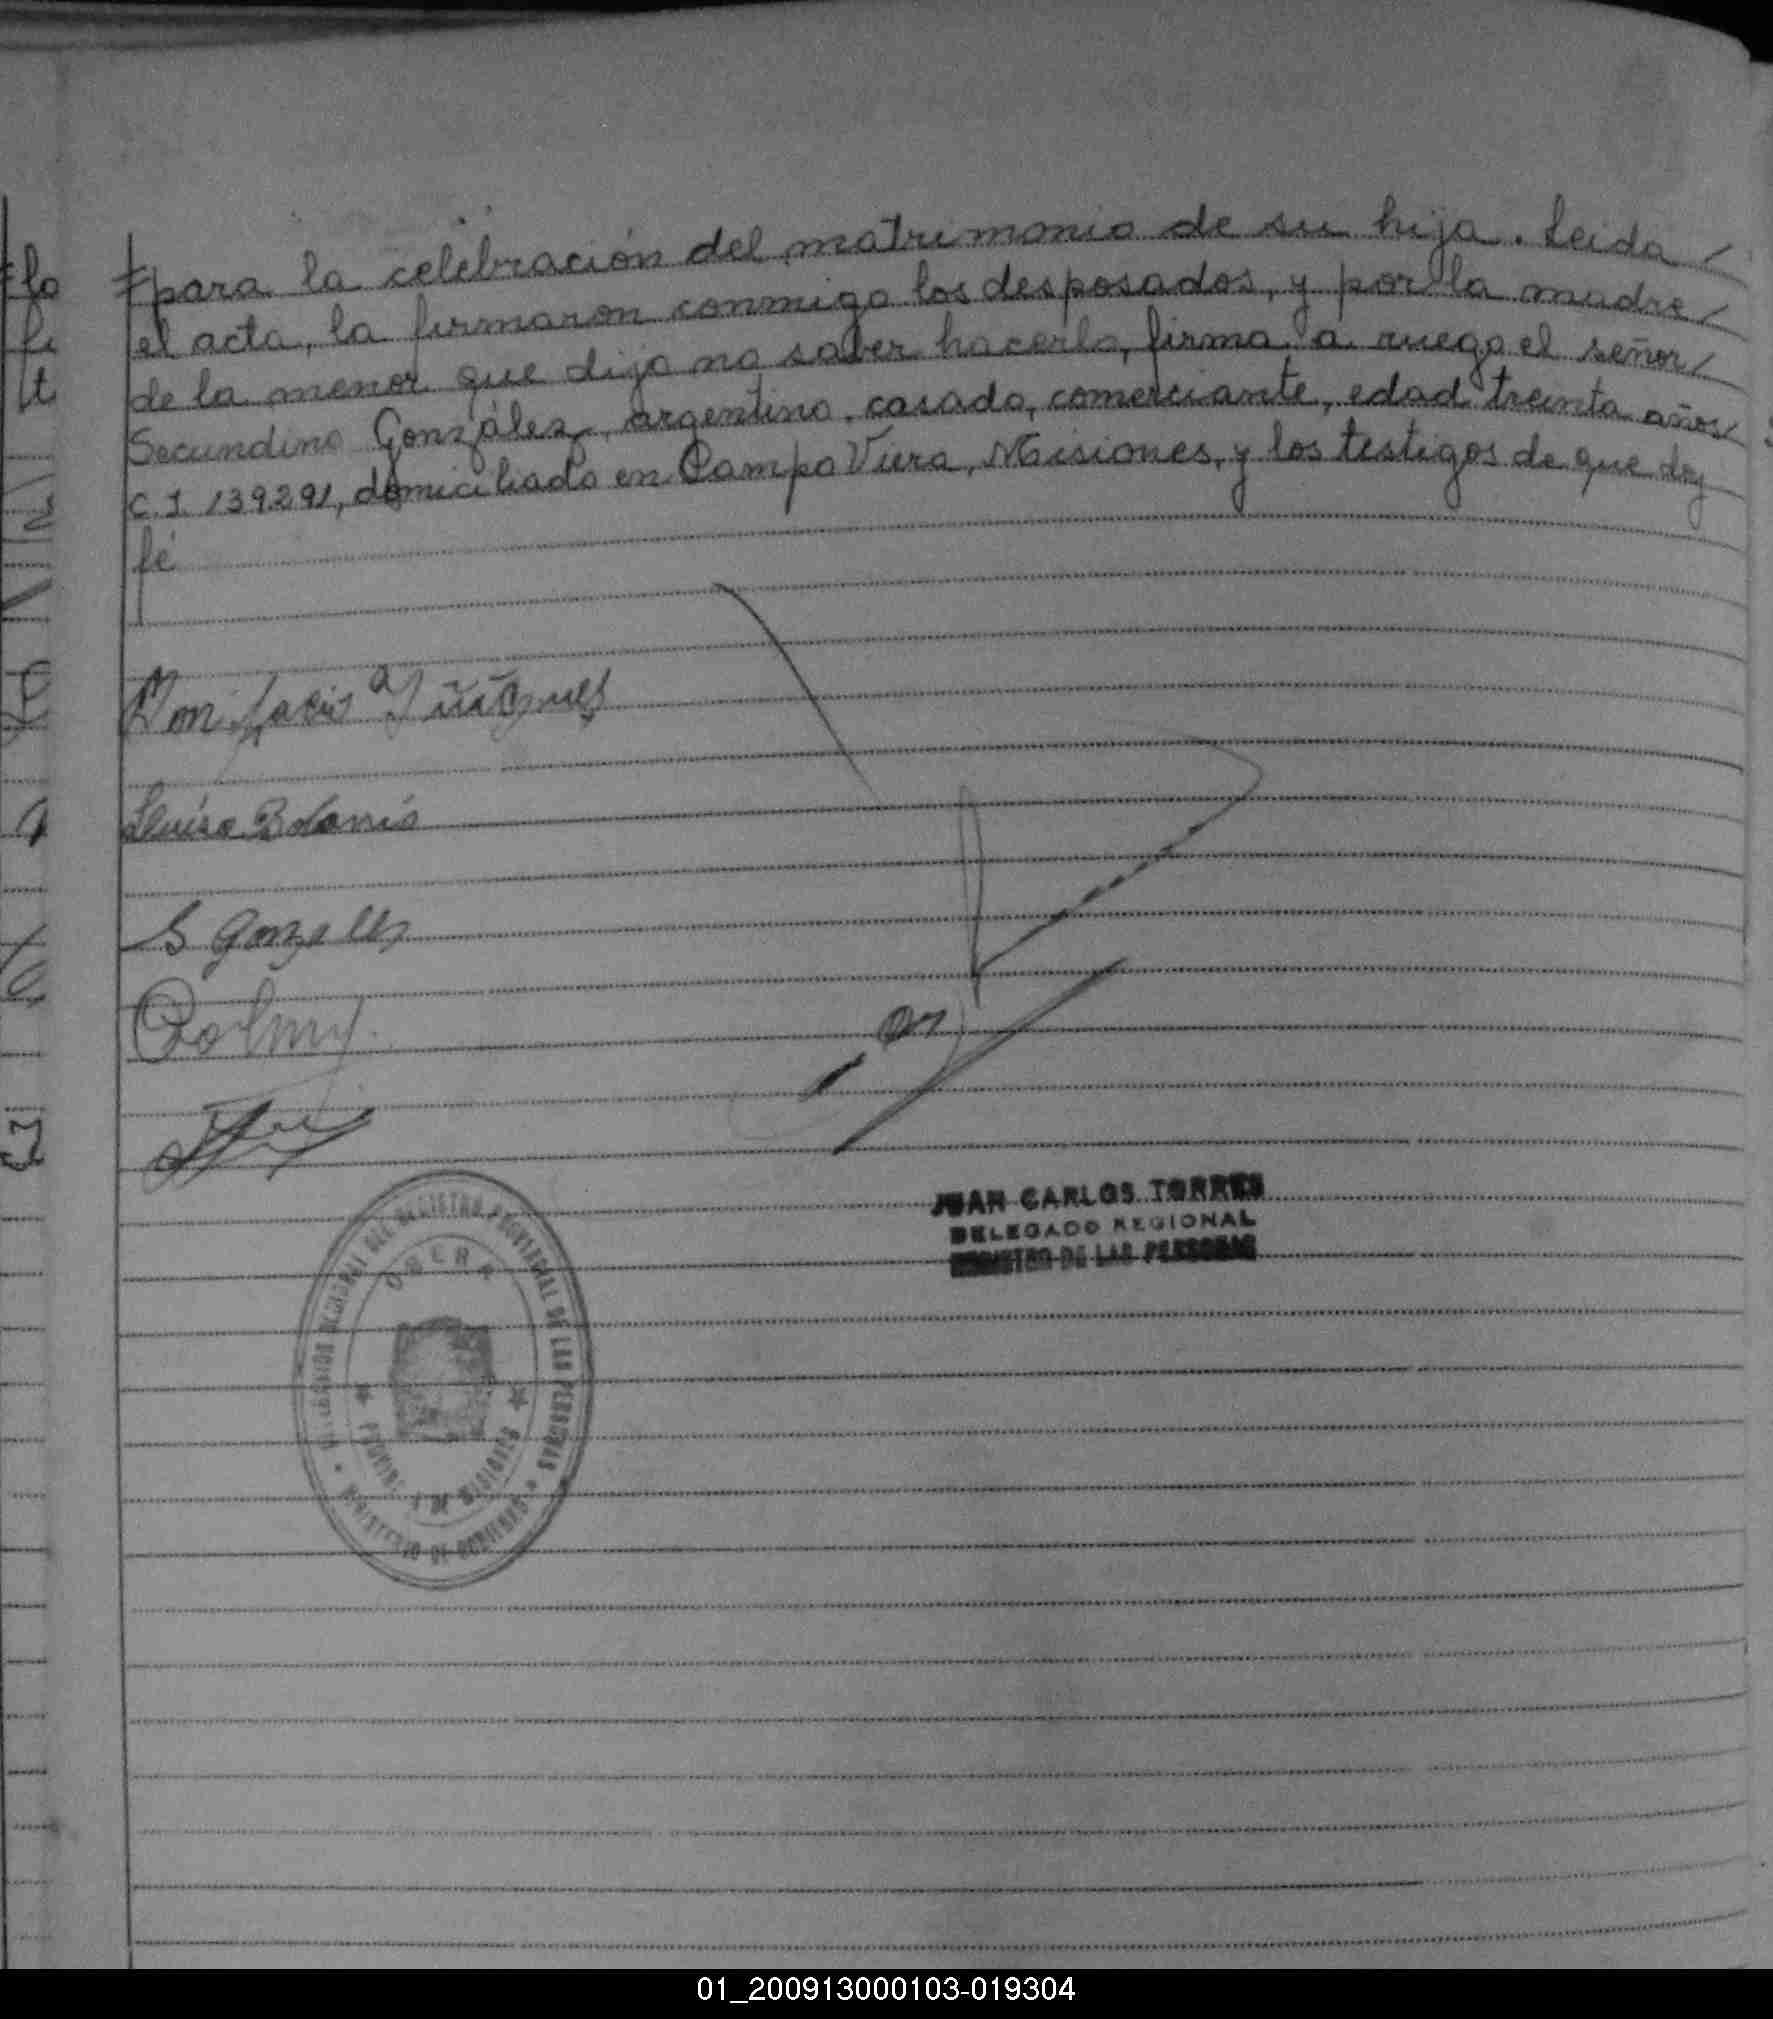 para la celebración del matrimonio de su hija. Leida
el acta, la firmaron conmigo los desposados, y por la madre
de la menor que dijo no saber hacerlo, firma a ruego el señor
Secundino González, argentino, casado, comerciante, edad treinta años
C.I. 139291, domiciliado en Campo Viera, Misiones, y los testigos de que doy
fé
S Gonzalez
JUAN CARLOS TORRES
DELEGADO REGIONAL
REGISTRO DE LAS PERSONAS
REGISTRO PROVINCIAL DE LAS PERSONAS
OBERA
MISIONES
MINISTERIO DE GOBIERNO
01_200913000103-019304